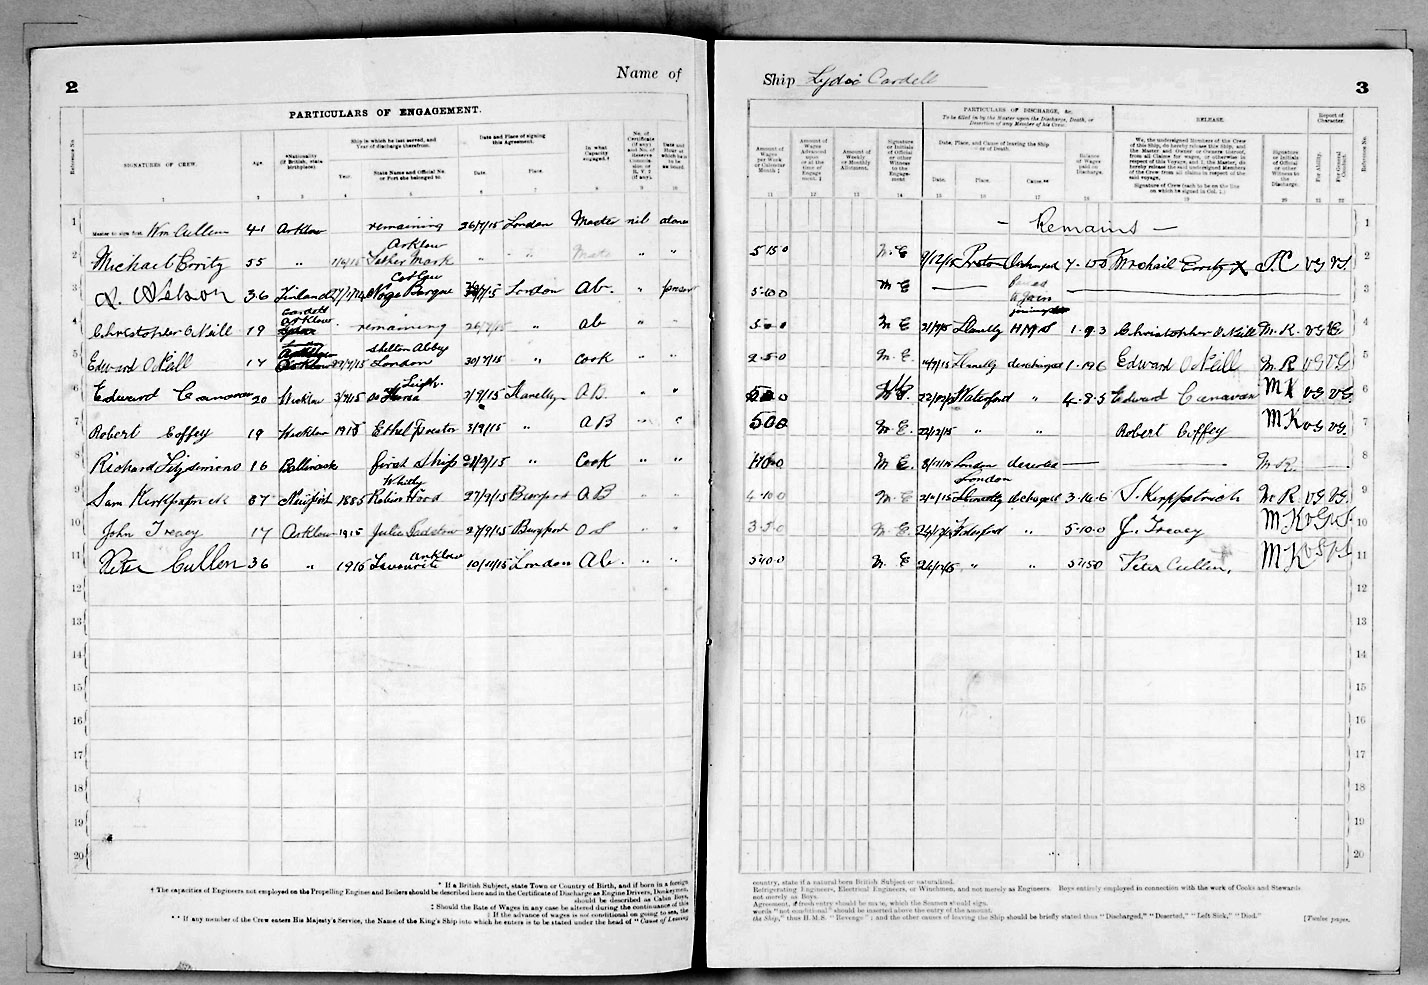 2
Name of
PARTICULARS OF ENGAGEMENT.
Reference No.
SIGNATURES OF CREW.
Age.
*Nationality (if British, state birthplace).
Ship in which he last served, and Year of discharge therefrom.
Year.
State Name and Official No. or Port she belonged to.
Date and Place of signing this Agreement.
Date.
Place.
In what Capacity engaged.†
No. of Certificate (if any) and No. of Reserve Commission or R.V.2 (if any).
Date and Hour at which he is to be on board.
1 2 3 4 5 6 7 8 9 10
1 Master to sign first. Wm Cullen 41 Arklow remaining 26/7/15 London Master nil alone
Arklow
2 Michael 55 " Father Mark " " Mate " "
3 Nelson 36 Finland Barque London Ab. "
Arklow
4 Christopher O'Neill 19 remaining 26/7/15 " ab " "
Shelton Abbey
5 Edward O'Neill 17 London 30/7/15 " Cook " "
6 Edward 20 Wicklow Llanelly AB " "
7 Robert Coffey 19 Wicklow 1915 Ethel 3/9/15 " AB
8 Richard Fitzsimons 16 first ship " Cook " "
Whitby
9 Sam Kirkpatrick 1885 Robin Hood 27/9/15 AB " "
10 John Treacy 17 Arklow 1915 27/9/15 OS " "
Arklow
11 Peter Cullen 36 " Favourite 10/11/15 London Ab. " "
12
13
14
15
16
17
18
19
20
* If a British Subject, state Town or Country of Birth, and if born in a foreign
† The capacities of Engineers not employed on the Propelling Engines and Boilers should be described here and in the Certificate of Discharge as Engine Drivers, Donkeymen,
should be described as Cabin Boys,
‡ Should the Rate of Wages in any case be altered during the continuance of this
‡ If the advance of wages is not conditional on going to sea, the
** If any member of the Crew enters His Majesty's Service, the Name of the King's Ship into which he enters is to be stated under the head of "Cause of Leaving
Ship Lydia Cardell
3
PARTICULARS OF DISCHARGE, &c.
To be filled in by the Master upon the Discharge, Death, or Desertion of any Member of his Crew.
RELEASE.
Report of Character.
Amount of Wages per Week or Calendar Month ‡
Amount of Wages Advanced upon or at the time of Engagement. ‡
Amount of Weekly or Monthly Allotment.
Signature or Initials of Official or other Witness to the Engagement
Date, Place, and Cause of leaving the Ship or of Death.
Date.
Place.
Cause.**
Balance of Wages paid on Discharge.
We, the undersigned Members of the Crew of this Ship, do hereby release this Ship, and the Master and Owner or Owners thereof, from all Claims for wages, or otherwise in respect of this Voyage, and I, the Master, do hereby release the undersigned Members of the Crew from all claims in respect of the said voyage.
Signature of Crew (each to be on the line on which he signed in Col. 1.)
Signature or Initials of Official or other Witness to the Discharge.
For Ability.
For General Conduct.
Reference No.
11 12 13 14 15 16 17 18 19 20 21 22
— Remains — 1
5 15 0 M E Michael X VG VG 2
5 10 0 M E 3
M E Llanelly 1 9 3 Christopher O'Neill M.K. VG VG 4
2 5 0 M E Llanelly discharged 1 19 6 Edward O'Neill M R VG VG 5
Waterford " 4 8 5 Edward Canavan M K VG VG 6
5 0 0 M E 22/12/15 " " Robert Coffey M K VG VG 7
M E London deserted — M R — 8
London
4 10 0 M E discharged 3 14 6 S. Kirkpatrick M R VG VG 9
3 5 0 M E Waterford " 5 10 0 J. Treacy M K VG VG 10
5 10 0 M E " " 5 15 0 Peter Cullen. M K VG VG 11
12
13
14
15
16
17
18
19
20
country, state if a natural born British Subject or naturalized.
Refrigerating Engineers, Electrical Engineers, or Winchmen, and not merely as Engineers. Boys entirely employed in connection with the work of Cooks and Stewards
not merely as Boys.
Agreement, a fresh entry should be made, which the Seamen should sign.
words "not conditional" should be inserted above the entry of the amount.
the Ship," thus H.M.S. "Revenge"; and the other causes of leaving the Ship should be briefly stated thus "Discharged," "Deserted," "Left Sick," "Died."
[Twelve pages.